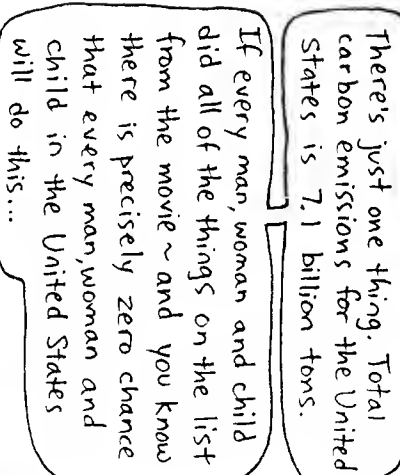 There's just one thing. Total
carbon emissions for the United
States is 7.1 billion tons.
If every man, woman and child
did all of the things on the list
from the movie ~ and you know
there is precisely zero chance
that every man, woman and
child in the United States
will do this...